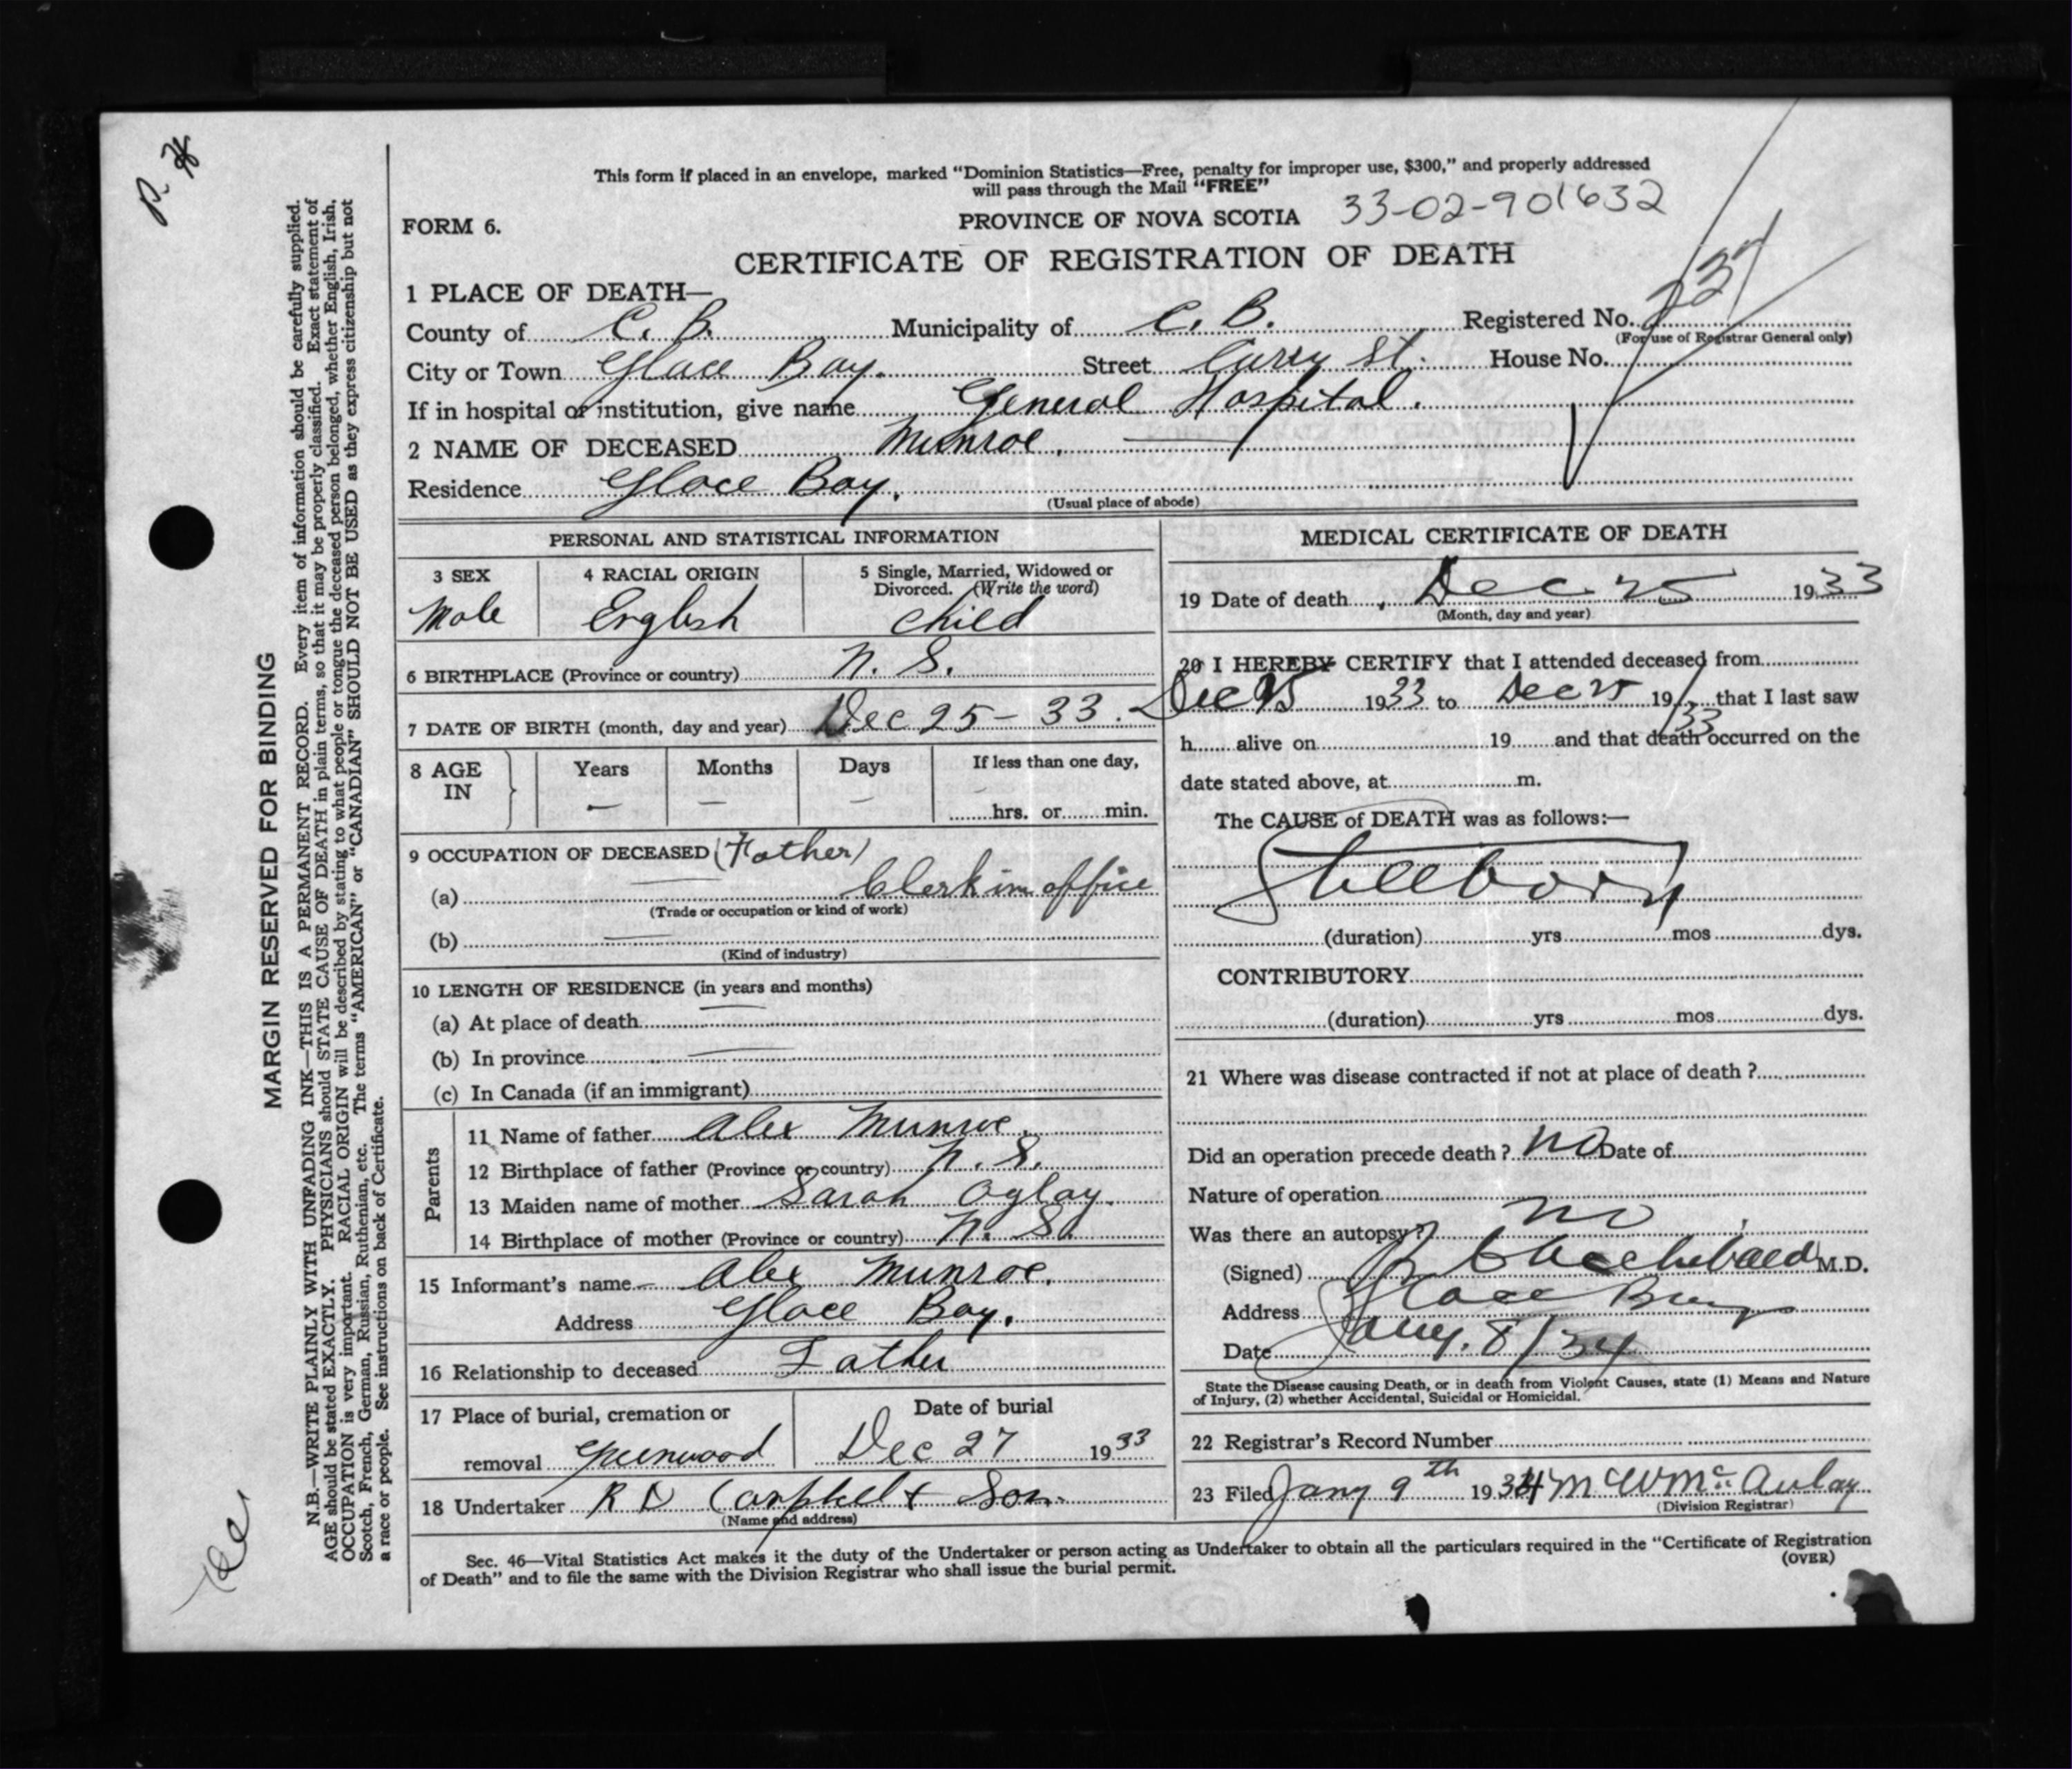 This form if placed in an envelope, marked “Dominion Statistics—Free, penalty for improper use, $300,” and properly addressed
will pass through the Mail “FREE”
FORM 6.
PROVINCE OF NOVA SCOTIA 33-02-901632
CERTIFICATE OF REGISTRATION OF DEATH
1 PLACE OF DEATH—
County of C. B. Municipality of C. B. Registered No.
(For use of Registrar General only)
City or Town Glace Bay. Street Curry St. House No.
If in hospital or institution, give name General Hospital.
2 NAME OF DECEASED Munroe.
Residence Glace Bay.
(Usual place of abode)
PERSONAL AND STATISTICAL INFORMATION
3 SEX 4 RACIAL ORIGIN 5 Single, Married, Widowed or
Divorced. (Write the word)
Male English Child
6 BIRTHPLACE (Province or country) N. S.
7 DATE OF BIRTH (month, day and year) Dec 25 - 33.
8 AGE IN Years Months Days If less than one day,
— — — hrs. or min.
9 OCCUPATION OF DECEASED (Father)
(a) Clerk in office
(Trade or occupation or kind of work)
(b) —
(Kind of industry)
10 LENGTH OF RESIDENCE (in years and months)
(a) At place of death —
(b) In province —
(c) In Canada (if an immigrant)
Parents
11 Name of father Alex Munroe.
12 Birthplace of father (Province or country) N. S.
13 Maiden name of mother Sarah Oglay.
14 Birthplace of mother (Province or country) N. S.
15 Informant's name Alex Munroe.
Address Glace Bay.
16 Relationship to deceased Father
17 Place of burial, cremation or Date of burial
removal Greenwood Dec 27 1933
18 Undertaker R D Campbell + Son.
(Name and address)
MEDICAL CERTIFICATE OF DEATH
19 Date of death Dec 25 1933
(Month, day and year)
20 I HEREBY CERTIFY that I attended deceased from
Dec 25 1933 to Dec 25 19 33 that I last saw
h alive on 19 and that death occurred on the
date stated above, at m.
The CAUSE of DEATH was as follows:—
Stillborn
(duration) yrs mos dys.
CONTRIBUTORY
(duration) yrs mos dys.
21 Where was disease contracted if not at place of death ?
Did an operation precede death ? NO Date of
Nature of operation
Was there an autopsy? no
(Signed) Archibald M.D.
Address Glace Bay
Date Jany. 8/34
State the Disease causing Death, or in death from Violent Causes, state (1) Means and Nature
of Injury, (2) whether Accidental, Suicidal or Homicidal.
22 Registrar's Record Number
23 Filed Jany 9th 1934 McAulay
(Division Registrar)
Sec. 46—Vital Statistics Act makes it the duty of the Undertaker or person acting as Undertaker to obtain all the particulars required in the “Certificate of Registration
of Death” and to file the same with the Division Registrar who shall issue the burial permit.
(OVER)
MARGIN RESERVED FOR BINDING
N.B.—WRITE PLAINLY WITH UNFADING INK—THIS IS A PERMANENT RECORD. Every item of information should be carefully supplied.
AGE should be stated EXACTLY. PHYSICIANS should STATE CAUSE OF DEATH in plain terms, so that it may be properly classified. Exact statement of
OCCUPATION is very important. RACIAL ORIGIN will be described by stating to what people or tongue the deceased person belonged, whether English, Irish,
Scotch, French, German, Russian, Ruthenian, etc. The terms “AMERICAN” or “CANADIAN” SHOULD NOT BE USED as they express citizenship but not
a race or people. See instructions on back of Certificate.